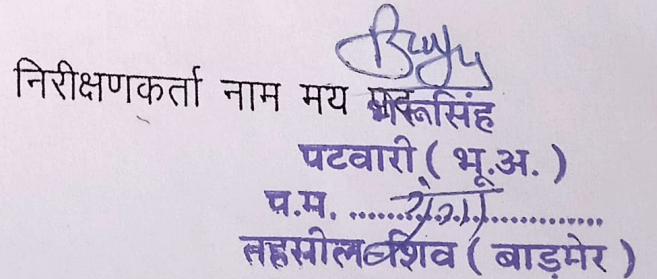 निरीक्षणकर्ता नाम मय पद
भैरूसिंह
पटवारी ( भू.अ. )
प.म. ....................
तहसील शिव ( बाड़मेर )